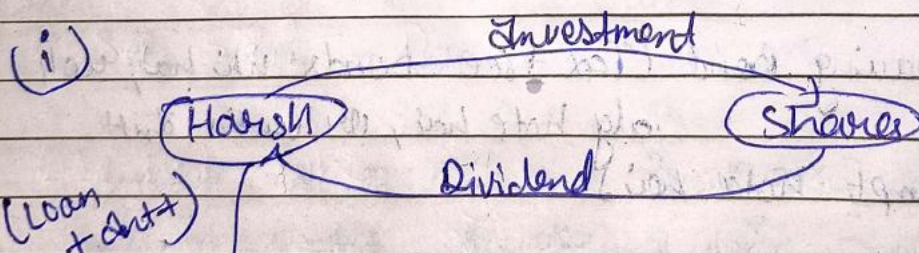 (i)
Investment
Harsh
Shares
Dividend
(Loan
+ Int+)